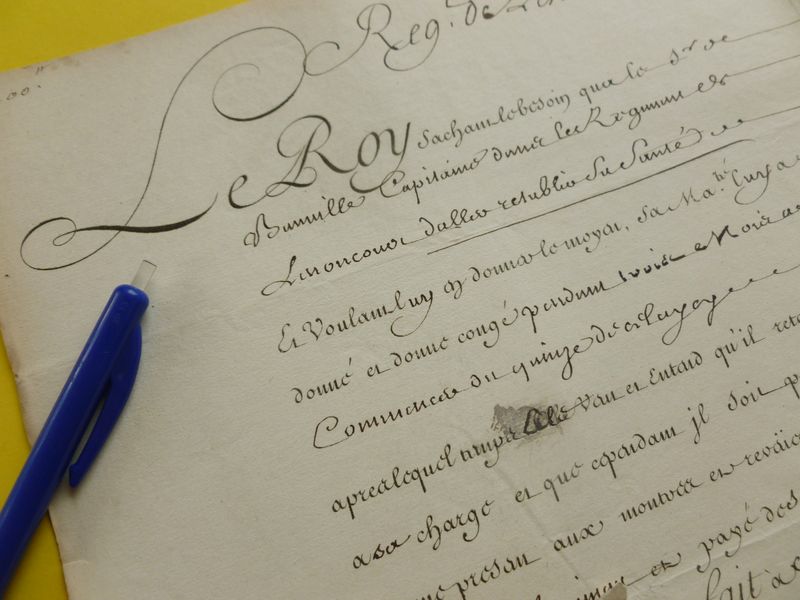 Reg.t de
Le Roy sachant le besoin que le S.r de
Capitaine dans le Regiment de
d'aller retablir sa santé
Et Voulant luy en donner le moyen, Sa Ma.té luy a
donné et donne congé pendant trois Mois a
Commencer du quinze de ce
apres lequel temps Elle Veut et Entend qu'il reto
a sa charge et que cependant jl soit p
present aux montres et reveües
et payé des
fait a